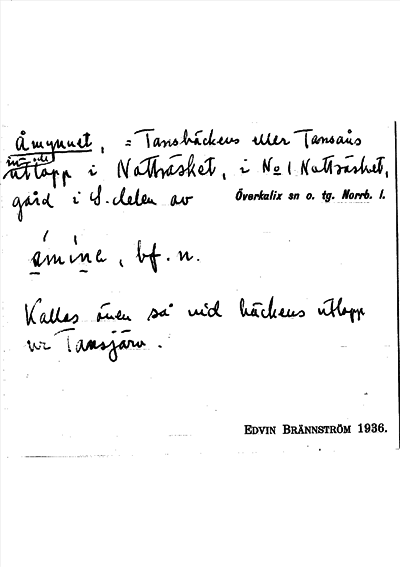 Åmynnet, = Tansbäckens eller Tansåns
in- och
utlopp i Natträsket, i No 1 Natträsket,
gård i S. delen av Överkalix sn o. tg. Norrb. l.
åmína, bf. n.
Kallas även så vid bäckens utlopp
ur Tansjärv.
EDVIN BRÄNNSTRÖM 1936.